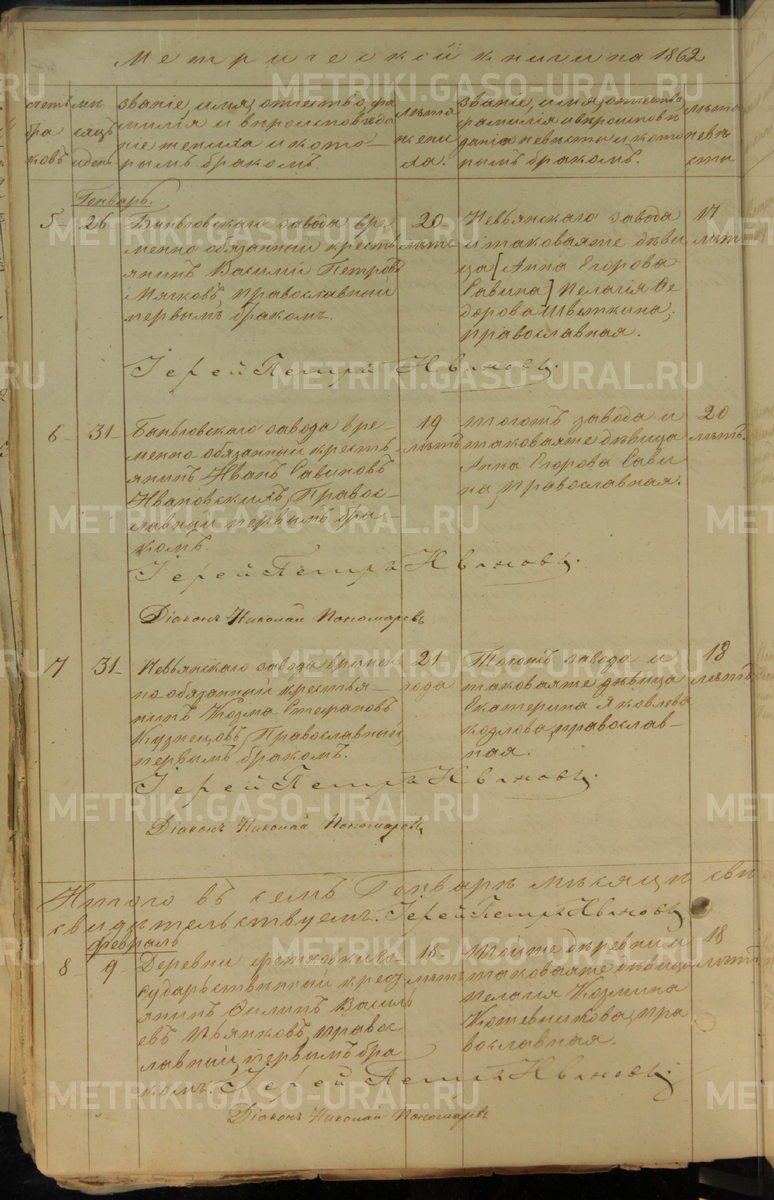 Метрической книги на 1862
METRIKI.GASO-URAL.RU
счетъ бра ковъ
мѣ сяцъ и день
званіе, имя, отчество, фа
милія и вѣроисповѣда
ніе жениха и кото
рымъ бракомъ.
лѣта жени ха.
званіе, имя, отчество
фамилія и вѣроисповѣ
даніе невѣсты и кото
рымъ бракомъ.
лѣта невѣ сты
Генварь.
5 26
Быньговскаго завода вре
менно обязанный кресть
янинъ Василій Петровъ
Мягковъ, православный
первымъ бракомъ.
20 лѣтъ
Невьянскаго завода
и таковаяже дѣви
ца [Анна Егорова
Савина] Пелагія Ѳе
дорова Швыткина,
православная.
17 лѣтъ
Іерей Петръ Ивановъ.
6 31
Быньговскаго завода вре
менно обязанный кресть
янинъ Иванъ Савиновъ
Ивановскихъ, Правос
лавный первымъ бра
комъ.
19 лѣтъ
тогожъ завода и
таковаяже дѣвица
Анна Егорова Сави
на, православная.
20 лѣтъ.
Іерей Петръ Ивановъ.
Діаконъ Николай Пономаревъ
7 31
Невьянскаго завода времен
но обязанный крестья
нинъ Козма Стефановъ
Кузнецовъ, Православный,
первымъ бракомъ.
21 года
Тогожъ завода и
таковаяже дѣвица
Екатерина Яковлева
Козлова, православ
ная.
18 лѣтъ
Іерей Петръ Ивановъ.
Діаконъ Николай Пономаревъ
Итого въ семъ Генварѣ мѣсяцѣ сви
свидѣтельствуемъ. Іерей Петръ Ивановъ
февраль
8 9
Деревни го
сударственный крес
янинъ Филипъ Василь
евъ Пьянковъ, правос
лавный, первымъ бра
комъ.
18 лѣтъ
Тойже деревни и
таковаяже дѣвица
Пелагія Козмина
Кожевникова, пра
вославная.
18 лѣтъ
Іерей Петръ Ивановъ
Діаконъ Николай Пономаревъ